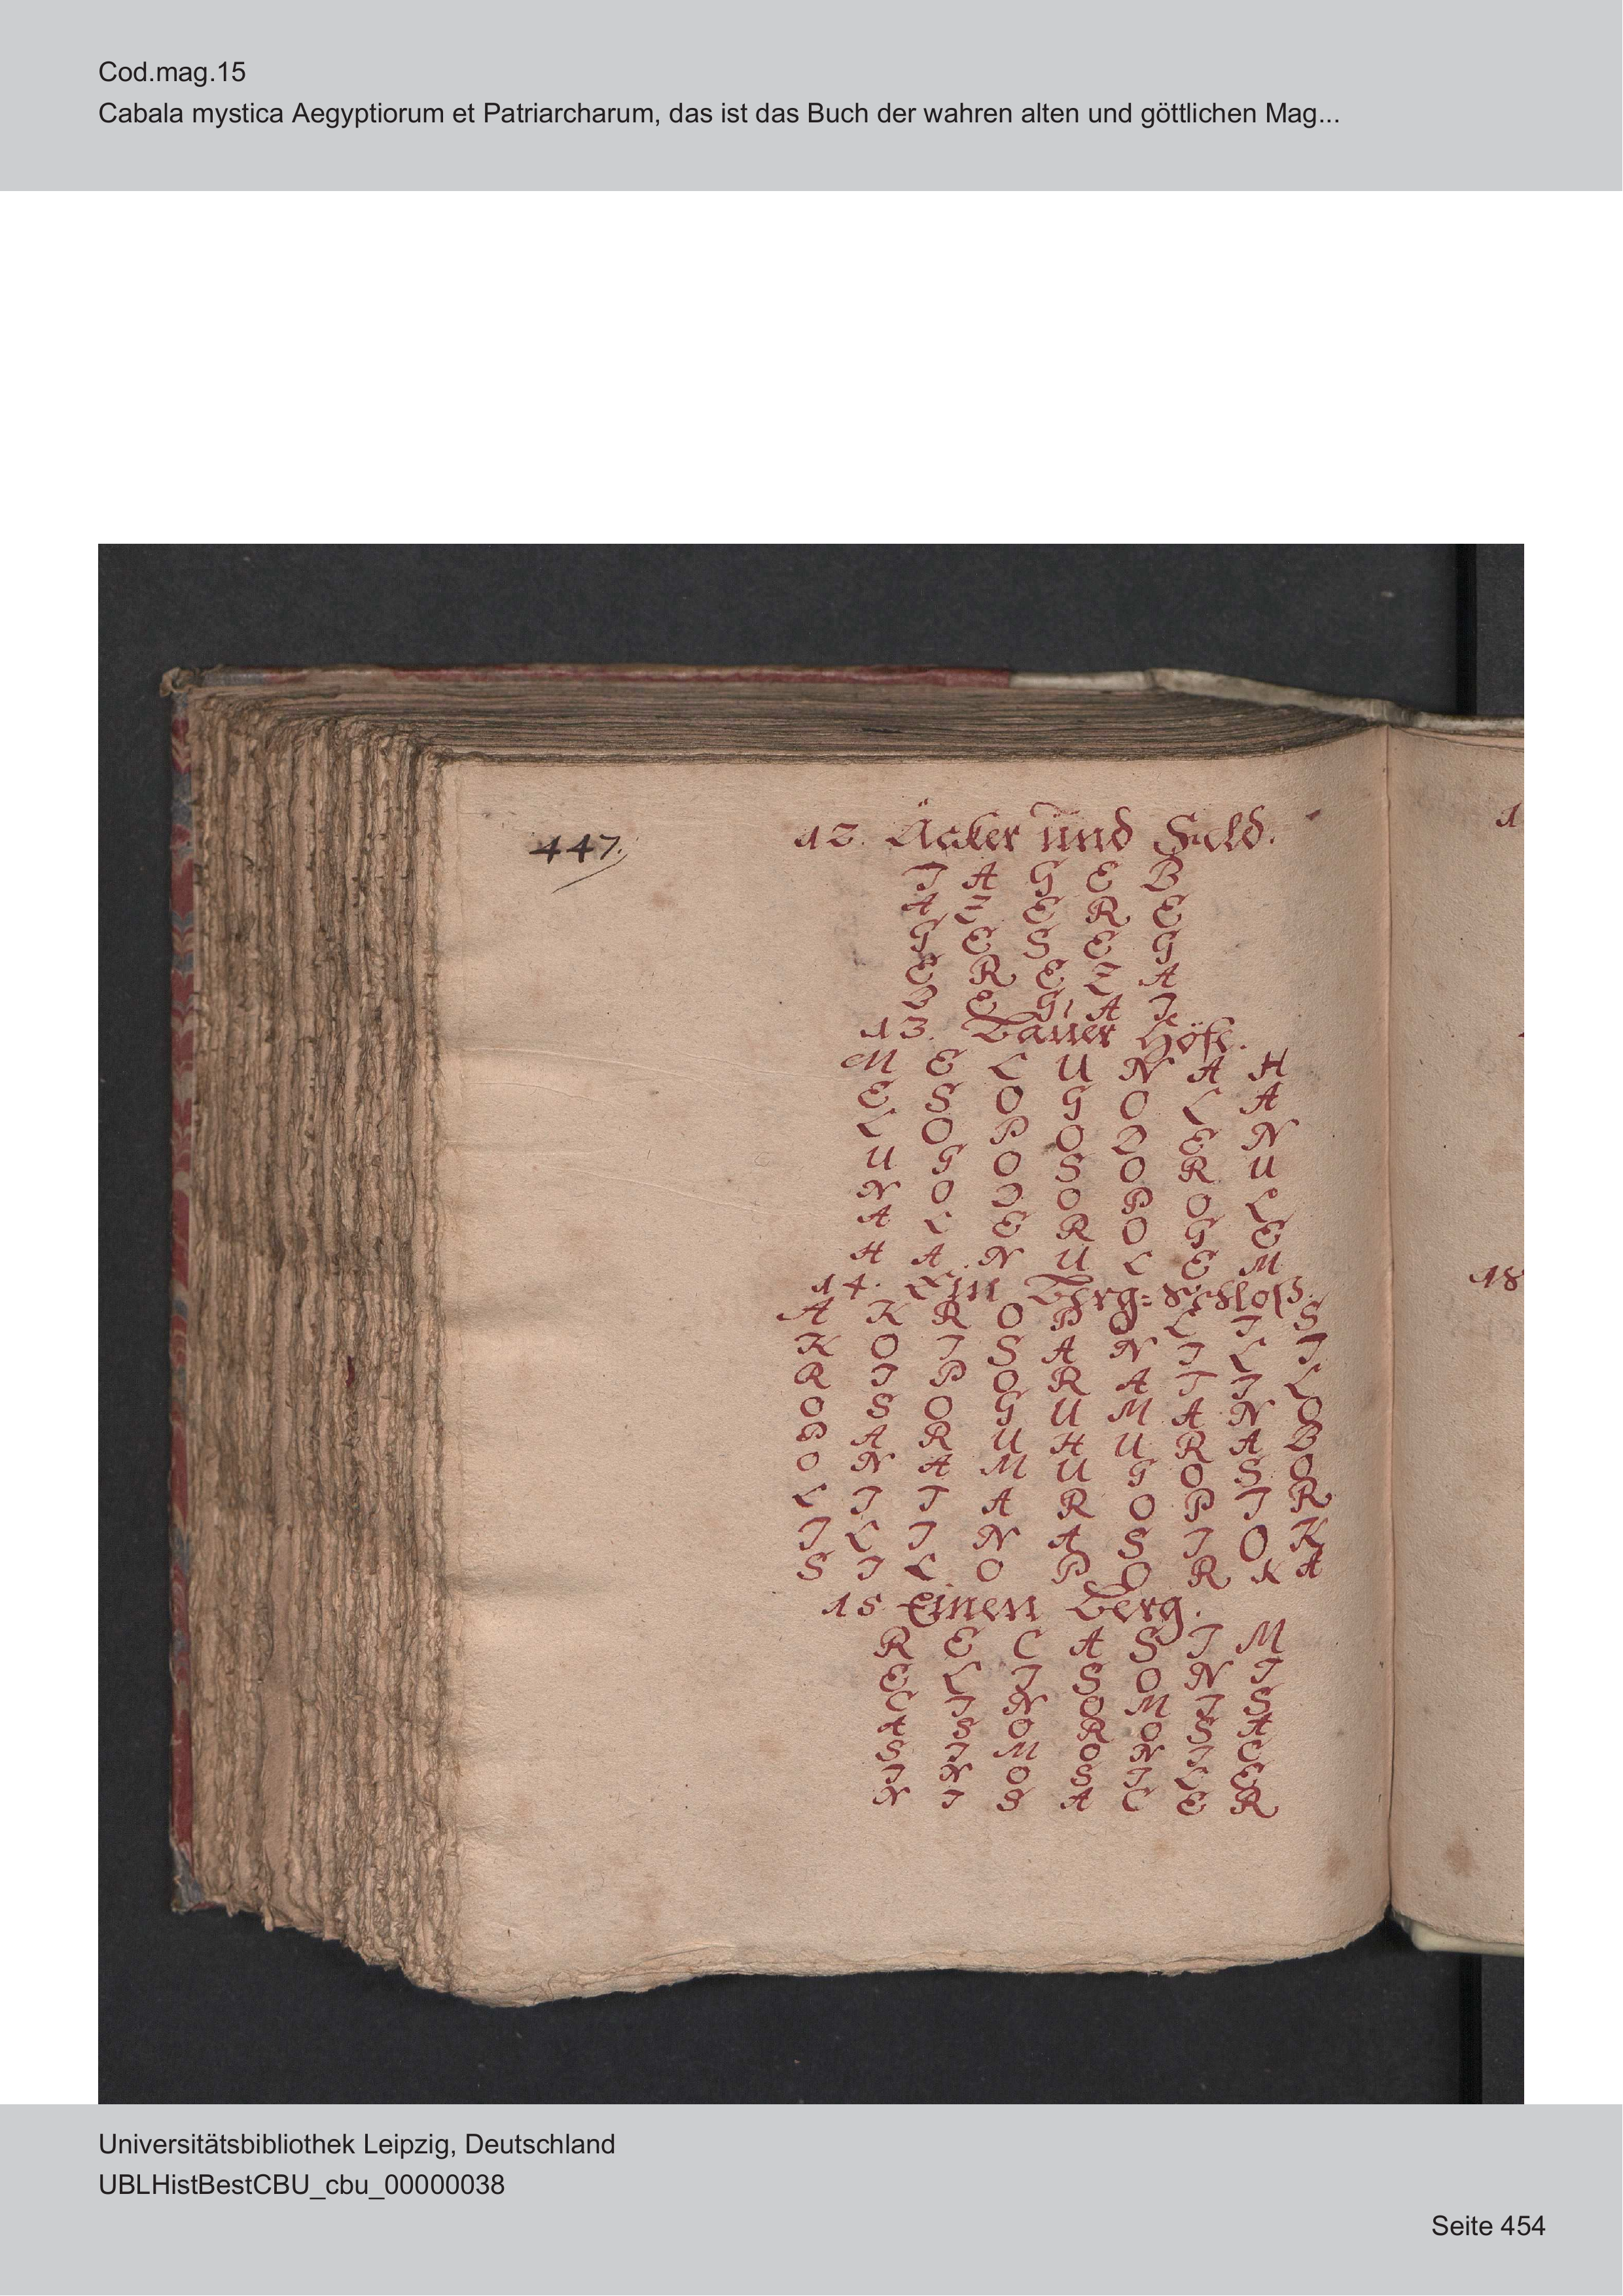 Cod.mag.15
Cabala mystica Aegyptiorum et Patriarcharum, das ist das Buch der wahren alten und göttlichen Mag...
447.
12. Äcker und Feld.
I A G E B
A Z E R E
G E S E G
E R E Z A
B E G A I
13. Bauer Höfe.
M E L U N A H
E S O G O L A
L O P O D E N
U G O S O R U
N O D O P O L
A L E R O G E
H A N U L E M
14. Ein Berg=Schloß.
A K R O P O L I S
K O I S A N I L I
R I P O R A T I L
O S O G U M A N O
P A R U H U R A B
O N A M U G O S O
L I T A R O P I R
I L I N A S I O K
S I L O P O R K A
15 Einen Berg.
R E C A S I M
E L I S O N I
C I N O M I S
A S O R O S A
S I M O N I C
I N O S I L E
N I S A C E R
1
18
Universitätsbibliothek Leipzig, Deutschland
UBLHistBestCBU_cbu_00000038
Seite 454